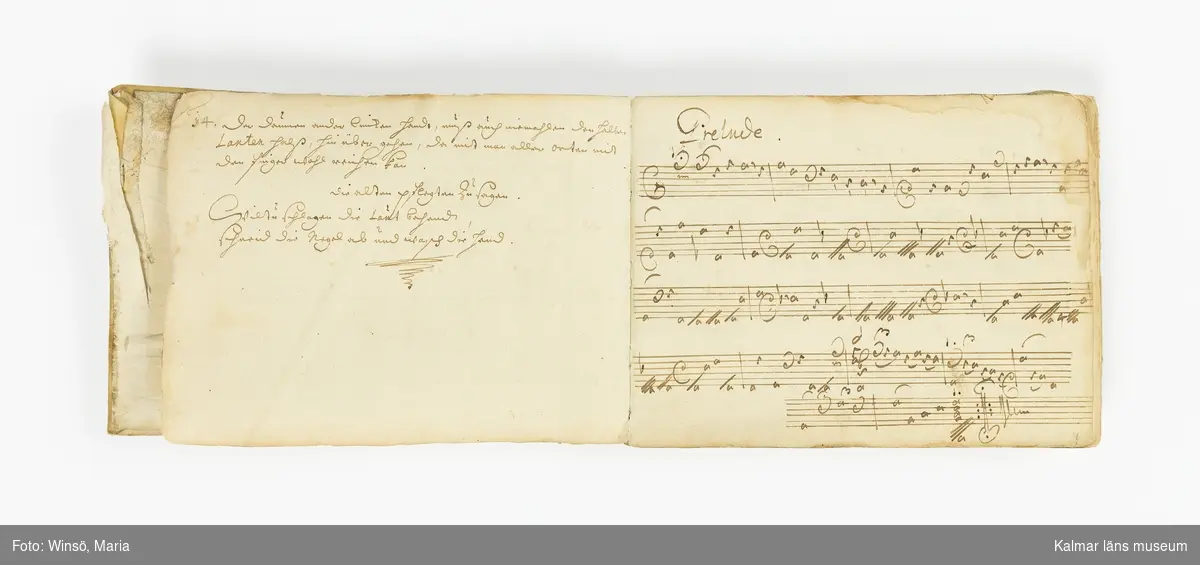 14. Der daumen ander lincken Handt, muß auch niemahlen den halben
Lauten halß, hin über gehen, da mit man aller orten mit
den finger wohl reichen kan
die alten pflegten zu sagen.
Wiltu schlagen die Laut behend,
schneid die Negel ab und wasch die Hend.
Prelude.
Foto: Winsö, Maria
Kalmar läns museum